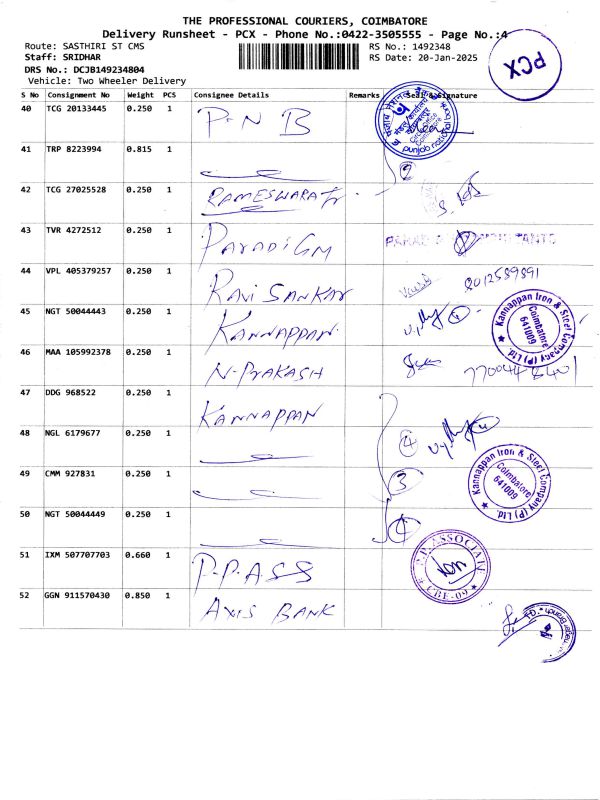 THE PROFESSIONAL COURIERS, COIMBATORE
Delivery Runsheet - PCX - Phone No.:0422-3505555 - Page No.:4
Route: SASTHIRI ST CMS RS No.: 1492348
Staff: SRIDHAR RS Date: 20-Jan-2025
DRS No.: DCJB149234804
Vehicle: Two Wheeler Delivery
PCX
S No Consignment No Weight PCS Consignee Details Remarks Seal & Signature
40 TCG 20133445 0.250 1 P-N B
punjab national bank
41 TRP 8223994 0.815 1
2
42 TCG 27025528 0.250 1 RAMESWARA Tr
43 TVR 4272512 0.250 1 PARADIGM
44 VPL 405379257 0.250 1 RAVI SANKAR 8012589891
45 NGT 50044443 0.250 1 KANNAPPAN
Kannappan Iron & Steel Company (P) Ltd.
Coimbatore
641009
46 MAA 105992378 0.250 1 N-PRAKASH
47 DDG 968522 0.250 1 KANNAPPAN
48 NGL 6179677 0.250 1
4
49 CMM 927831 0.250 1
3
Kannappan Iron & Steel Company (P) Ltd.
Coimbatore
641009
50 NGT 50044449 0.250 1
51 IXM 507707703 0.660 1 P.P.ASS
CBE-09
52 GGN 911570430 0.850 1 AXIS BANK